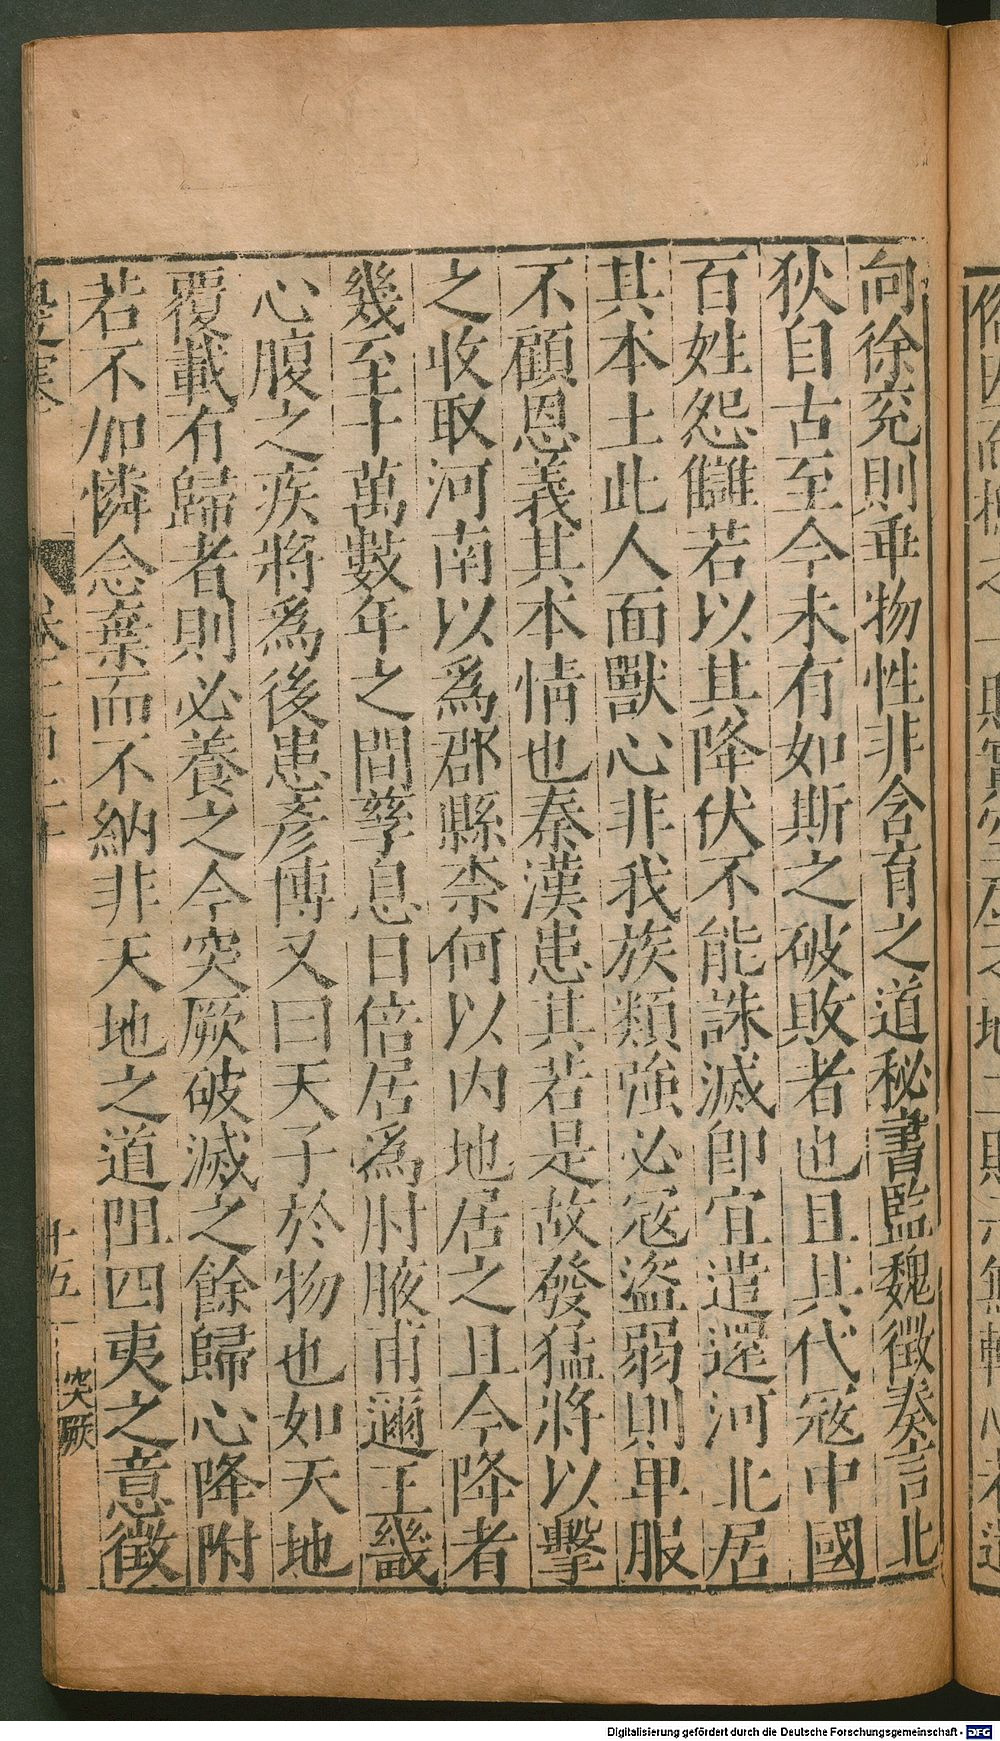 向徐兖則乖物性非含育之道秘書監魏徵奏言北
狄自古至今未有如斯之破敗者也且其代寇中國
百姓怨讎若以其降伏不能誅滅即宜遣還河北居
其本土此人面獸心非我族類強必寇盜弱則卑服
不顧恩義其本情也秦漢患其若是故發猛將以擊
之收取河南以爲郡縣柰何以內地居之且今降者
幾至十萬數年之間孳息日倍居爲肘腋甫邇王畿
心腹之疾將爲後患彥博又曰天子於物也如天地
覆載有歸者則必養之今突厥破滅之餘歸心降附
若不加憐念棄而不納非天地之道阻四夷之意徵
十五
突厥
Digitalisierung gefördert durch die Deutsche Forschungsgemeinschaft - DFG